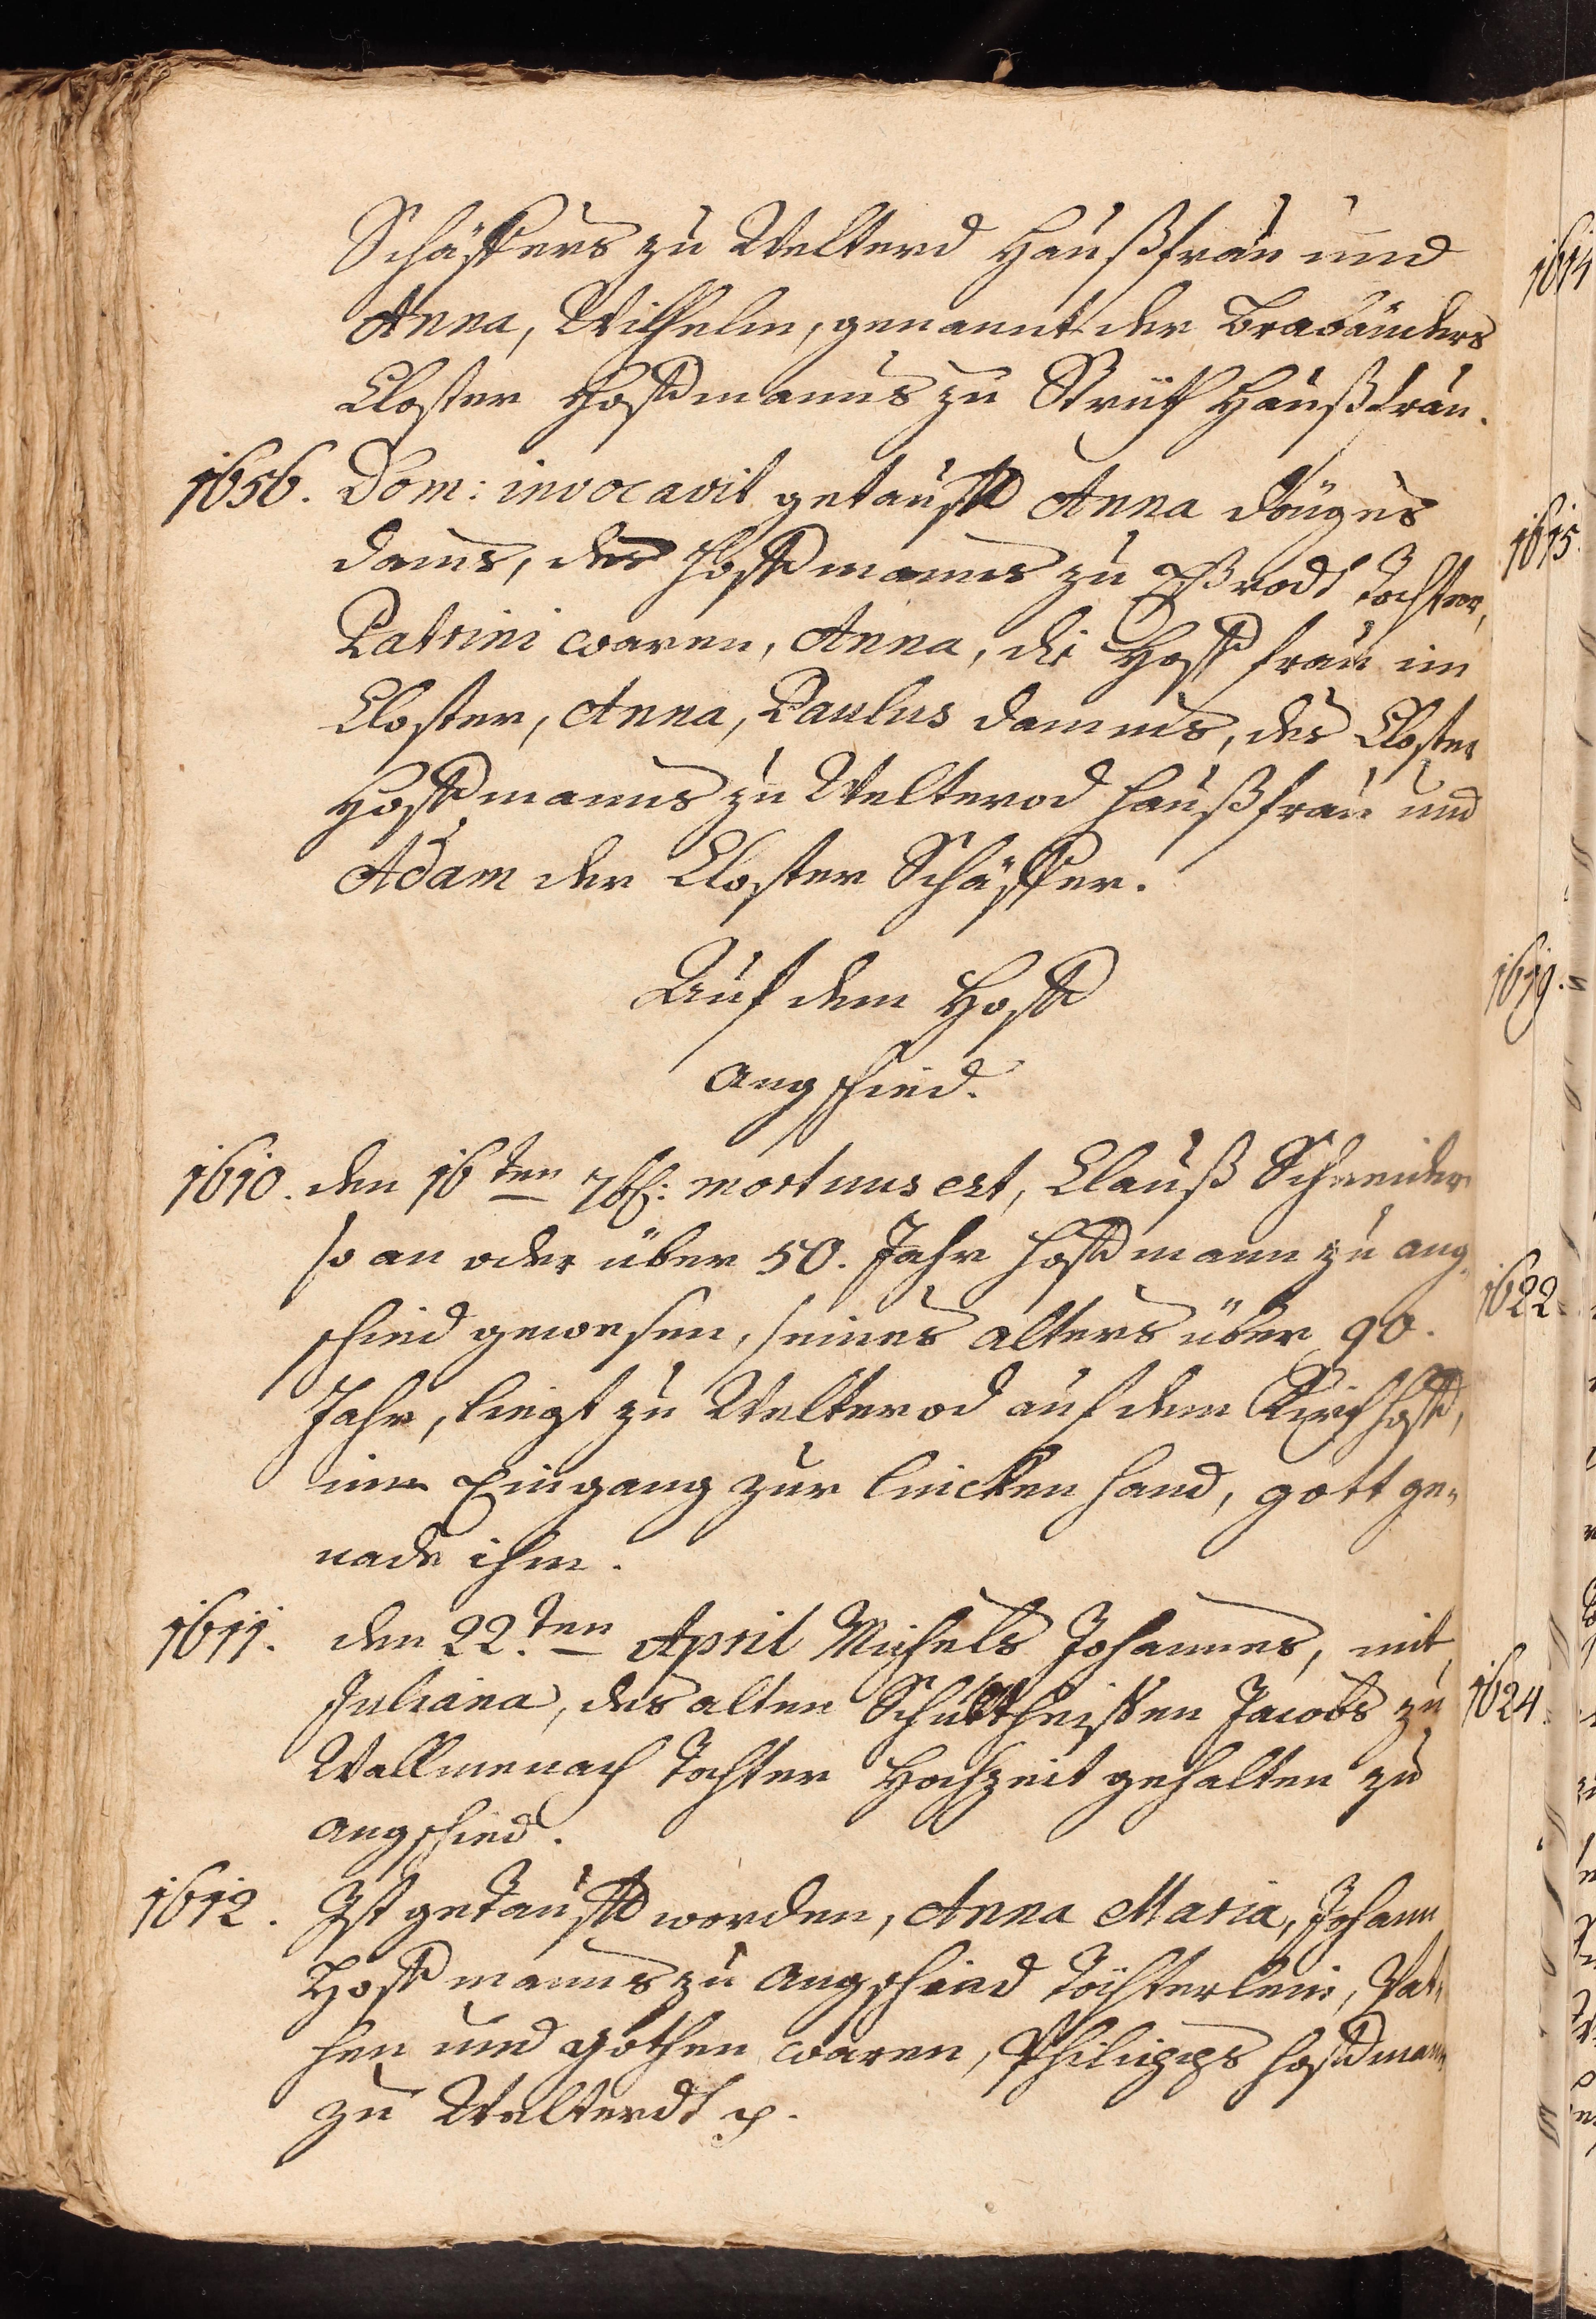 Schäffers zu Welterd Haußfrau und
Anna, Wilhelm, genannt der Brabänders
Closter Hoffmanns zu Strüth Haußfrau.
1656. Dom: invocavit getaufft Anna Dönges
Dams, des Hoffmanns zu Eßrodt Tochter,
Patrini waren, Anna, die Hoff frau im
Closter, Anna, Paulus Damms, des Closter
Hoffmanns zu Welterod Haußfrau und
Adam der Closter Schäffer.
Auf dem Hoff
Angschied.
1610. den 16ten 7br: mortuus est, Clauß Schneider
so an oder über 50. Jahr Hoffmann zu Ang-
schied gewesen, seines alters über 90.
Jahr, liegt zu Welterod auf dem Kirchhoff,
im Eingang zur lincken Hand, gott ge-
nade ihm.
1611. den 22.ten April Michels Johannes, mit
Juliana, des alten Schultheißen Jacobs zu
Wallmenach Tochter Hochzeit gehalten zu
Angschied.
1612. Ist getaufft worden, Anna Maria, Johann
Hoffmanns zu Angschied Töchterlein, Pat-
hen und Göthen waren, Philipps Hoffmann
zu Welterdt p.
1614
1615.
1619.
1622
1624